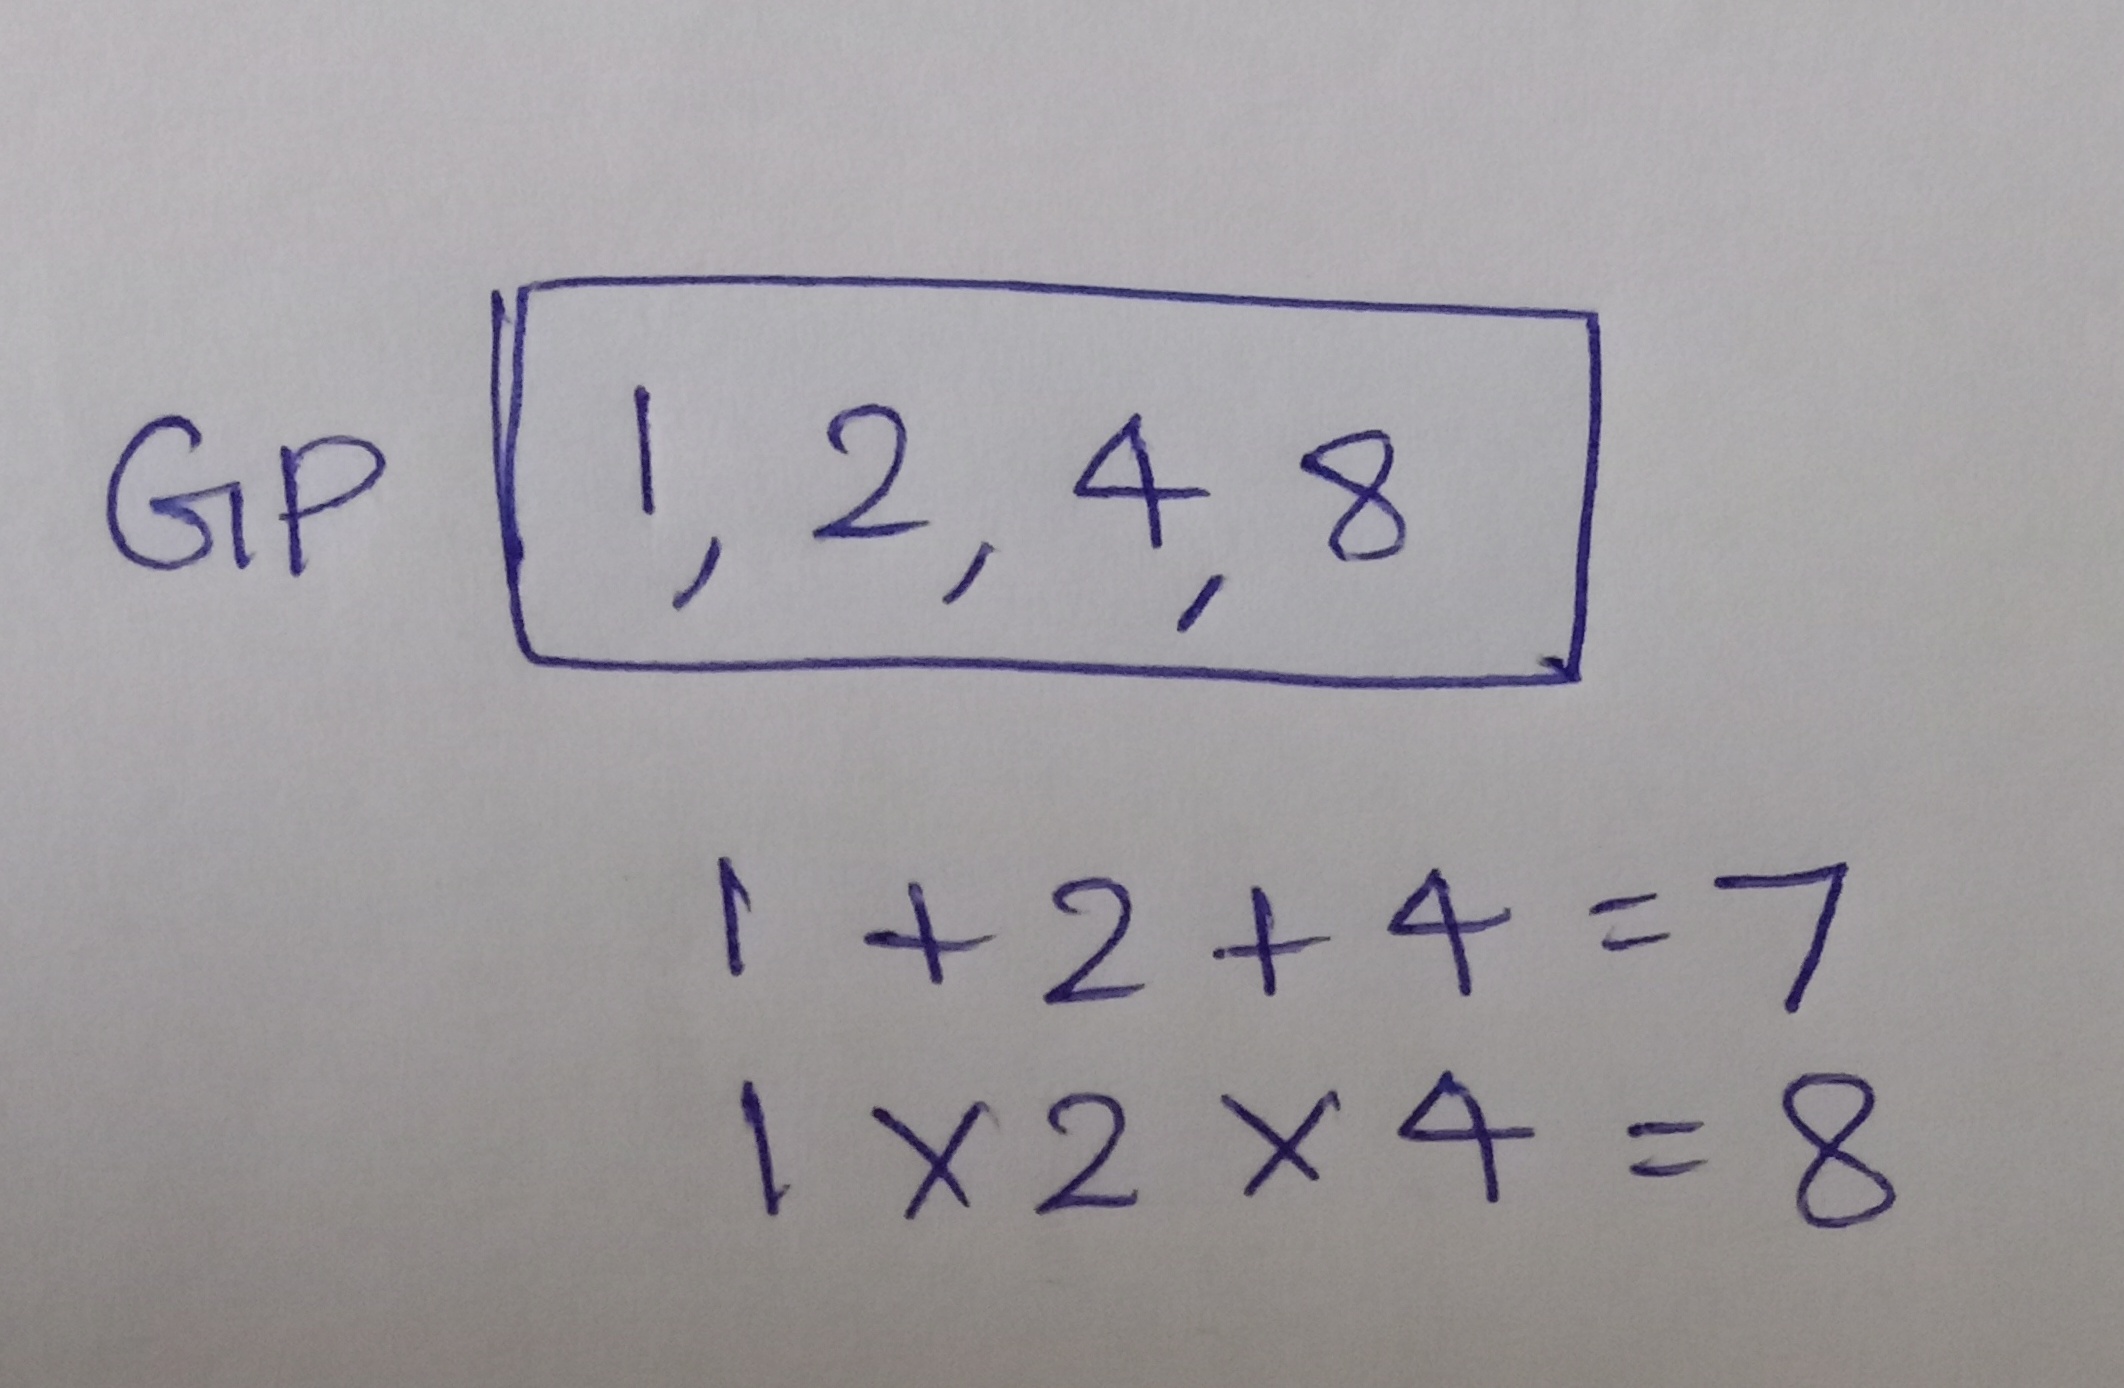 GP 1, 2, 4, 8
1 + 2 + 4 = 7
1 x 2 x 4 = 8